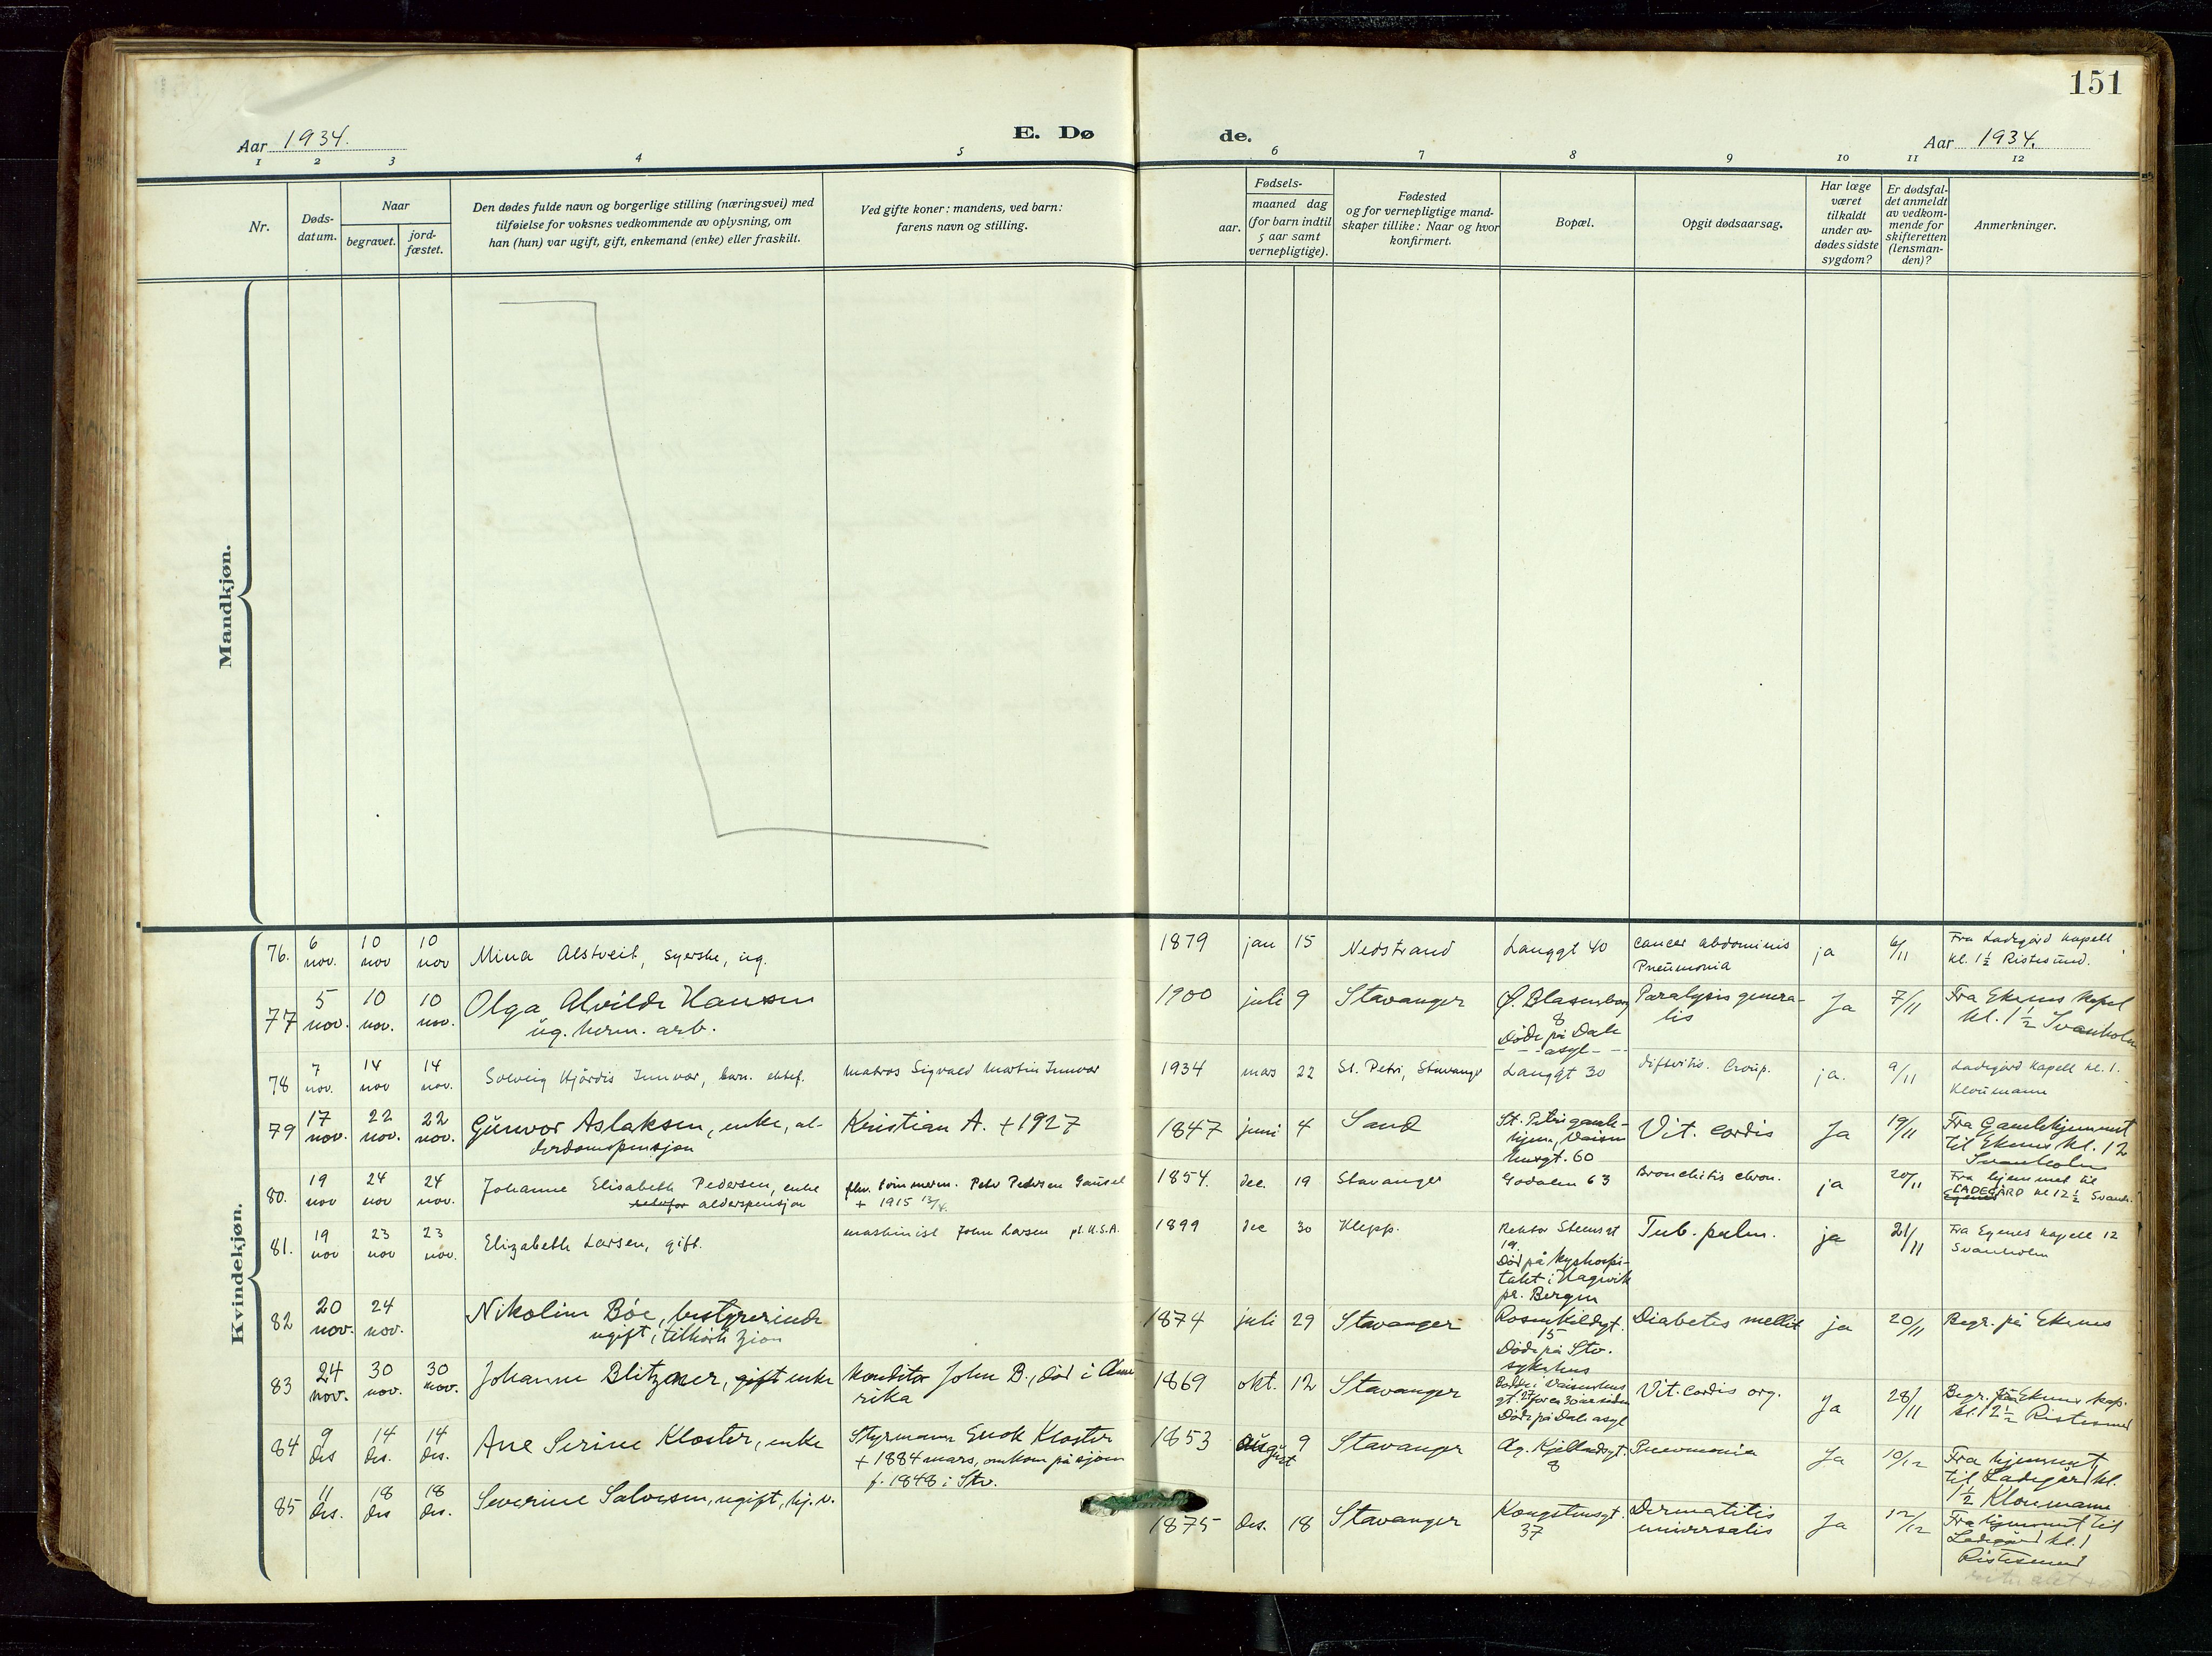 151
Aar 1934.
E. Dø
de.
Aar 1934.
1 2 3 4 5 6 7 8 9 10 11 12
Nr.
Døds-
datum.
Naar
begravet.
jord-
fæstet.
Den dødes fulde navn og borgerlige stilling (næringsvei) med
tilføielse for voksnes vedkommende av oplysning, om
han (hun) var ugift, gift, enkemand (enke) eller fraskilt.
Ved gifte koner: mandens, ved barn:
farens navn og stilling.
Fødsels-
aar.
maaned dag
(for barn indtil
5 aar samt
vernepligtige).
Fødested
og for vernepligtige mand-
skaper tillike: Naar og hvor
konfirmert.
Bopæl.
Opgit dødsaarsag.
Har læge
været
tilkaldt
under av-
dødes sidste
sygdom?
Er dødsfal-
det anmeldt
av vedkom-
mende for
skifteretten
(lensman-
den)?
Anmerkninger.
Mandkjøn.
Kvindekjøn.
76.
6
nov.
10
nov
10
nov
Mina Alstveit, syerske, ug.
1879 jan 15 Nedstrand
Langgt 40
cancer abdominis
Pneumonia
ja
6/11
Fra Ladegård kapell
kl. 1½ Ristesund.
77
5
nov.
10
nov.
10
nov.
Olga Alvilde Hansen
ug. herm. arb.
1900 juli 9 Stavanger
Ø. Blasenborg
8
Døde på Dale
asyl
Paralysis genera-
lis
Ja
7/11
Fra Ekenes Kapel
kl. 1½ Svanholm
78
7
nov.
14
nov
14
nov.
Solveig Hjördis Innvar, barn. ektef.
matros Sigvald Martin Innvar
1934 mars 22 St. Petri, Stavanger
Langgt 30
difteritis. Croup.
ja.
9/11
Ladegård Kapell kl. 1.
Kloumann
79
17
nov.
22
nov.
22
nov.
Gunvor Aslaksen, enke, al-
derdomspensjon
Kristian A. + 1927
1847 juni 4 Sand
St. Petri gamle-
hjem, Vaisen
husgt. 60
Vit. cordis
Ja
19/11
Fra Gamlehjemmet
til Ekenes kl. 12
Svanholm
80.
19
nov
24
nov
24
nov.
Johanne Elisabeth Pedersen, enke
alderspensjon
fhv. tømmerm. Peder Pedersen Gausel
+ 1915
1854. dec. 19 Stavanger
Godalen 63
Bronchitis chron.
ja
20/11
Fra hjemmet til
Egenes LADEGÅRD kl 12½ Svanh.
81.
19
nov
23
nov
23
nov.
Elizabeth Larsen, gift.
maskinist John Larsen pt. U.S.A.
1899 dec 30 Klepp.
Rektor Steensgt
19.
Død på kysthospi-
talet i Hagevik
pr. Bergen
Tub. pulm.
ja
21/11
Fra Egenes Kapell 12
Svanholm
82
20
nov.
24
nov.
Nikoline Böe, bestyrerinde
ugift, tilhörte Zion
1874 juli 29 Stavanger
Rosenkildegt.
15
Döde på Stv.
sykehus
Diabetes mellit
ja
20/11
Begr. på Ekenes
83
24
nov.
30
nov.
30
nov.
Johanne Blitzner, gift enke
Konditor John B., död i Ame
rika
1869 okt. 12 Stavanger
Bodde i Vaisenhus
gt. 27 for en 30 år siden
Döde på Dale asyl
Vit. cordis org.
Ja
28/11
Begr. på Ekenes kap.
kl. 12½ Ristesund
84
9
des
14
des.
14
des.
Ane Serine Kloster, enke
Styrmann Enok Kloster
+ 1884 mars, omkom på sjøen
f. 1848 i Stv.
1853 august 9 Stavanger
Ag. Kjellandsgt.
8
Pneumonia
Ja
10/12
Fra hjemmet
til Ladegård kl.
1½ Kloumann
85
11
des.
18
des
18
des.
Severine Salvesen, ugift, hj. v.
1875 des. 18 Stavanger
Kongstensgt.
37
Dermatitis
universalis
Ja
12/12
Fra hjemmet til
Ladegård kl. 1
Ristesund